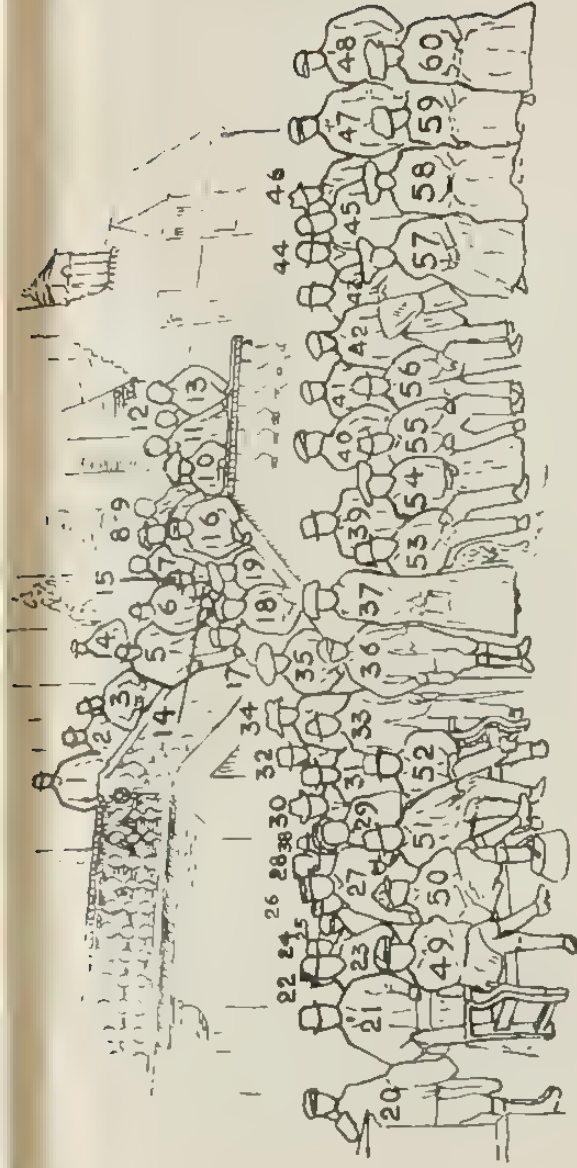 1
2
3
4
5
6
7
8 9
10
11
12
13
14
15
16
17
18
19
20
21
22
23
24
25
26
27
28
38
29
30
31
32
33
34
35
36
37
39
40
41
42
43
44
45
46
47
48
49
50
51
52
53
54
55
56
57
58
59
60